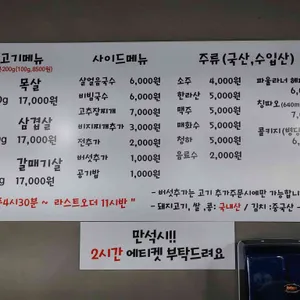 고기메뉴
200g(100g,8500원)
목살
17,000원
삼겹살
17,000원
갈매기살
17,000원
사이드메뉴
살얼음국수 6,000원
비빔국수 6,000원
고추장찌개 7,000원
비지찌개추가 3,000원
전추가 2,000원
버섯추가 1,000원
공기밥 1,000원
주류(국산,수입산)
소주 4,000원
한라산 5,000원
맥주 5,000원
매화수 5,000원
청하 5,000원
음료수 2,000원
파울라너
칭따오 (640m
콜키지(
4시30분~ 라스트오더 11시반"
- 버섯추가는 고기 추가주문시에만 가능합니
- 돼지고기, 쌀, 콩: 국내산 / 김치:중국산
만석시!!
2시간 에티켓 부탁드려요